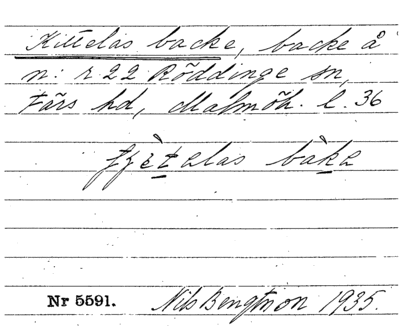 Kittelas backe, backe å
n: r 22 Röddinge sn,
Färs hd, Malmöh. l. 36
backe
Nr 5591. Nils Bengtsson 1935.